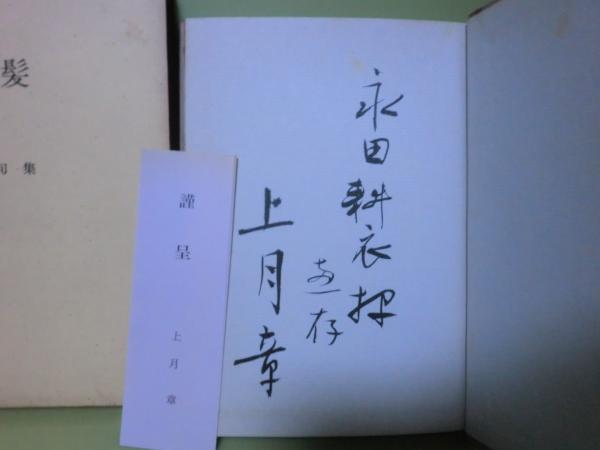 永田耕衣様
恵存
上月章
謹呈
上月章
髪
句集